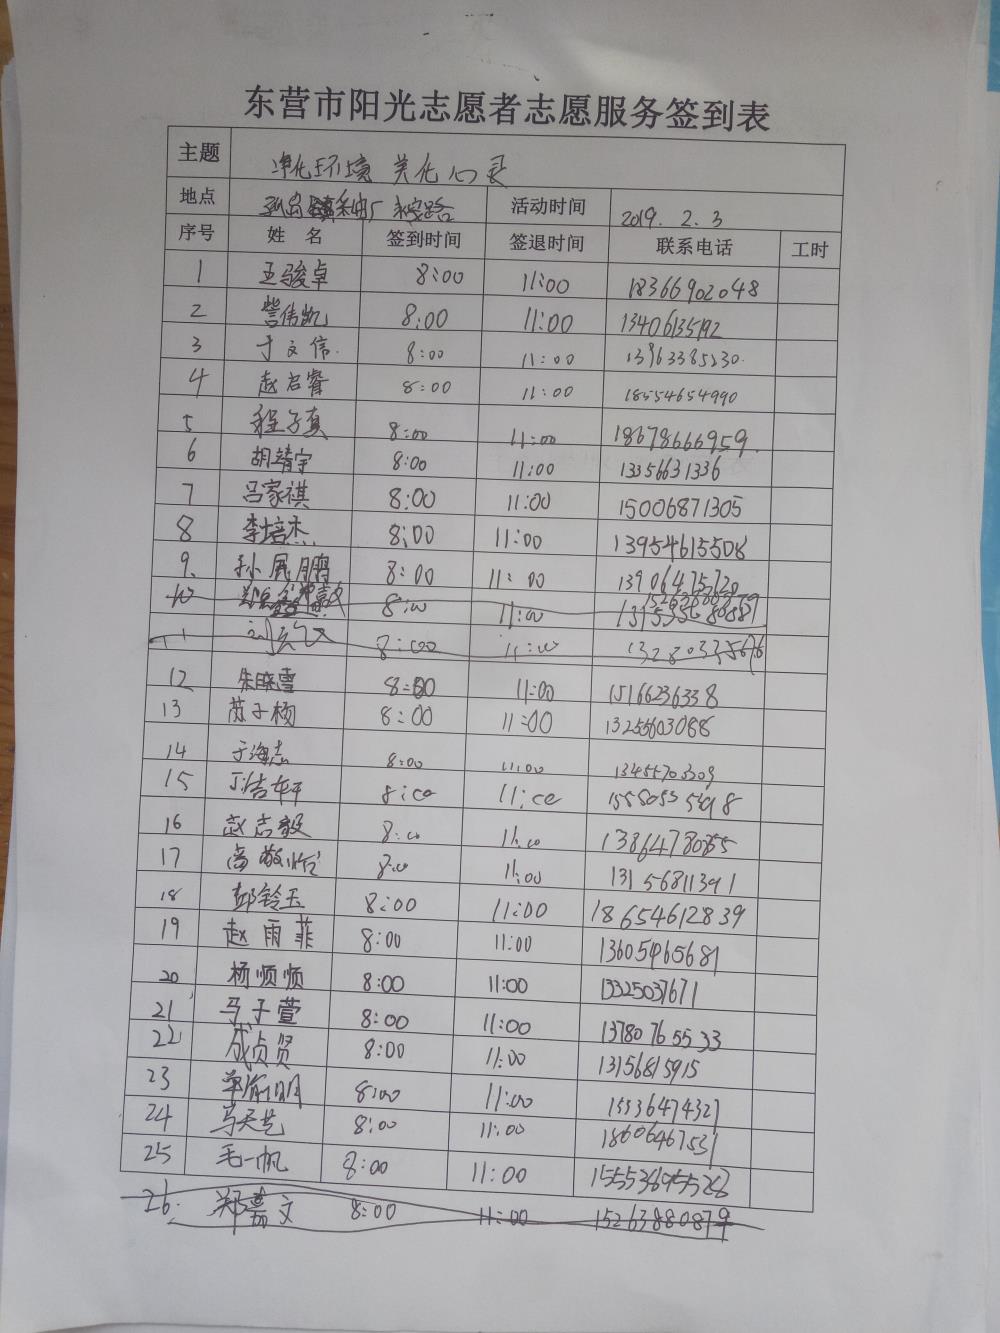 东营市阳光志愿者志愿服务签到表
主题 净化环境 美化心灵
地点 活动时间 2019. 2. 3
序号 姓 名 签到时间 签退时间 联系电话 工时
1 王骏卓 8:00 11:00 18366902048
2 訾伟凯 8:00 11:00 13406135192
3 于文信 8:00 11:00 13963385230
4 赵启睿 8:00 11:00 18554654990
5 程子真 8:00 11:00 18678666959
6 胡靖宇 8:00 11:00 13356631336
7 吕家祺 8:00 11:00 15006871305
8 李培杰 8:00 11:00 13954615508
9. 孙展鹏 8:00 11:00 13906475720
10 8:00 11:00
8:00 11:00 13280335676
12 朱晓雪 8:00 11:00 15166236338
13 苏子杨 8:00 11:00 13255603088
14 于海志 8:00 11:00 13455703309
15 丁浩轩 8:00 11:00
16 赵志毅 8:00 11:00
17 高敬怡 8:00 11:00 13156811391
18 彭铃玉 8:00 11:00 18654612839
19 赵雨菲 8:00 11:00 13605465681
20 杨顺顺 8:00 11:00 13325037671
21 马子萱 8:00 11:00 13780765533
22 成贞贤 8:00 11:00 13156815915
23 单俞明 8:00 11:00 15336474327
24 马天艺 8:00 11:00 18606467531
25 毛一帆 8:00 11:00
26. 郑嘉文 8:00 11:00 15263880879